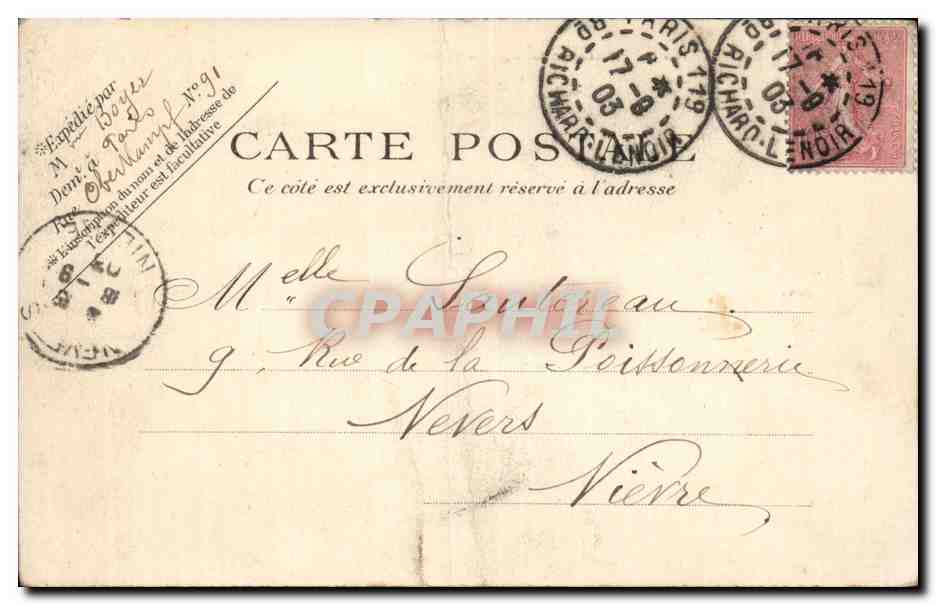 *Expédié par
M Boyer
Dem.t à Paris
Rue Oberkampf N.º 91
*L'inscription du nom et de l'adresse de
l'expéditeur est facultative
PARIS 119
17 - 6
03
BD RICHARD-LENOIR
PARIS 119
17 - 6
03
BD RICHARD-LENOIR
CARTE POSTALE
Ce côté est exclusivement réservé à l'adresse
Melle
CPAPHIL
9, Rue de la Poissonnerie
Nevers
Nièvre